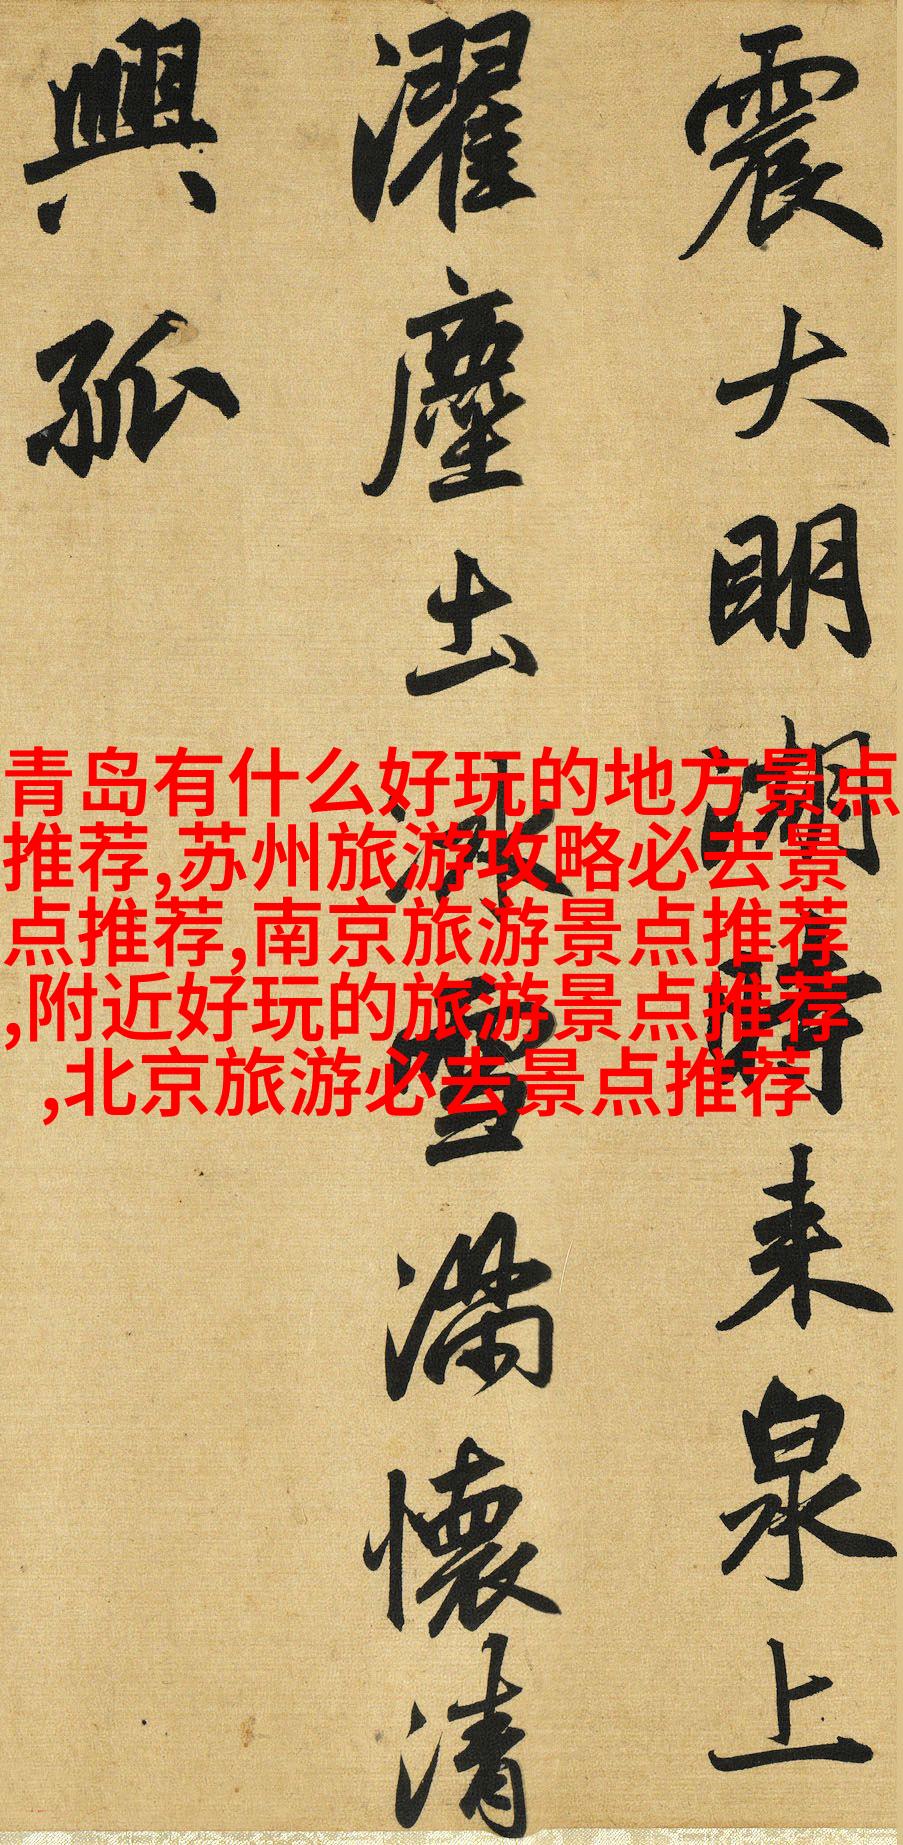 震大明湖時来泉上
濯塵出冰雪滿懷清
興孤
青岛有什么好玩的地方景点
推荐,苏州旅游攻略必去景
点推荐,南京旅游景点推荐
,附近好玩的旅游景点推荐
,北京旅游必去景点推荐